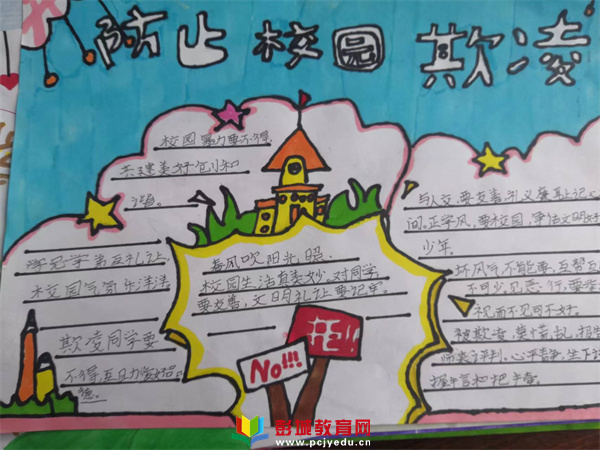 防止校园欺凌
校园暴力要不得,
共建美好创和
谐。
学习学弟互礼让
校园气氛乐洋洋
欺凌同学要
不得,互助友爱好品
德。
春风吹,阳光照.
校园生活真美妙.对同学
要友善,文明礼让要记牢。
No!!!
与人交,要友善.礼义廉耻记心
间.正学风,要校园,争法文明好
少年.
坏风气,不能要,互帮互
不可少.见恶行,要
视而不见可不好.
被欺者,莫慌乱,报告
师来评判.心平静,坐下
握手言和把手
彭城教育网
www.pcjyedu.cn